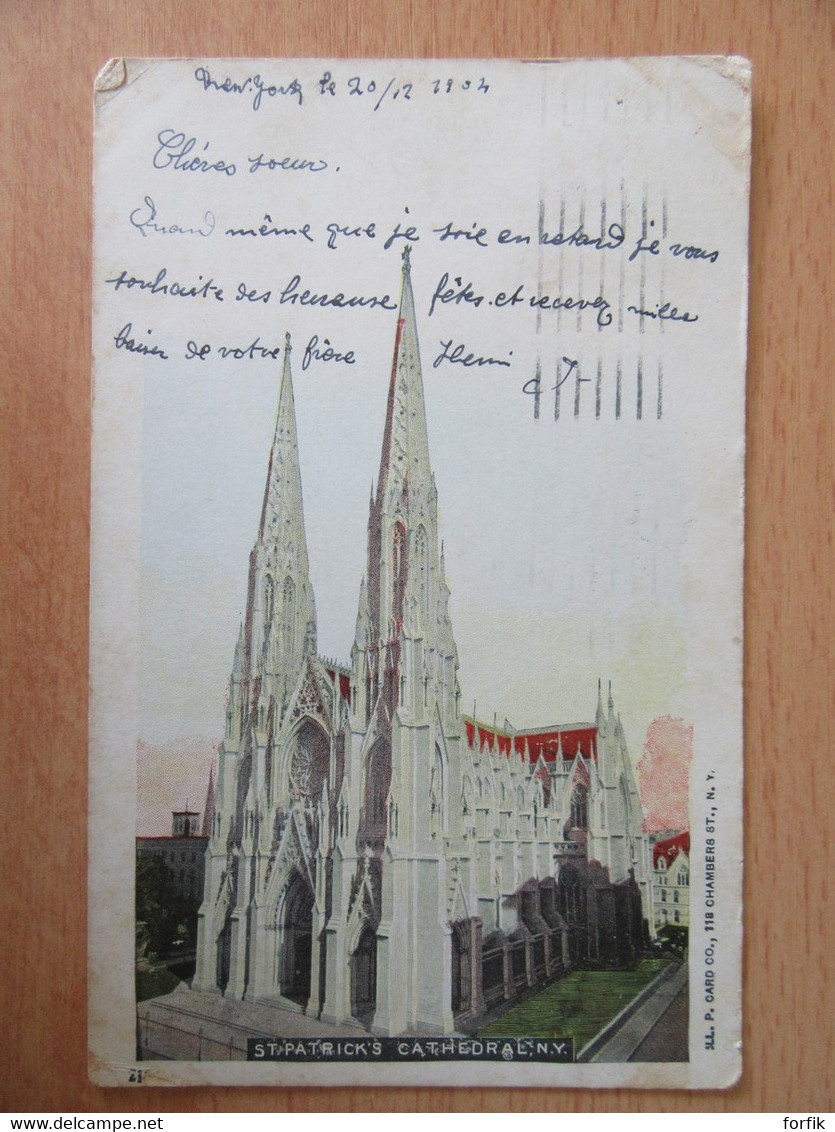 New-York le 20/12 1904
Chères soeur.
Quand même que je soie en retard je vous
souhaite des heurause fêtes. et recevez mille
baiser de votre frère Henri
ST. PATRICK'S CATHEDRAL, N.Y.
ILL. P. CARD CO., 118 CHAMBERS ST., N. Y.
forfik